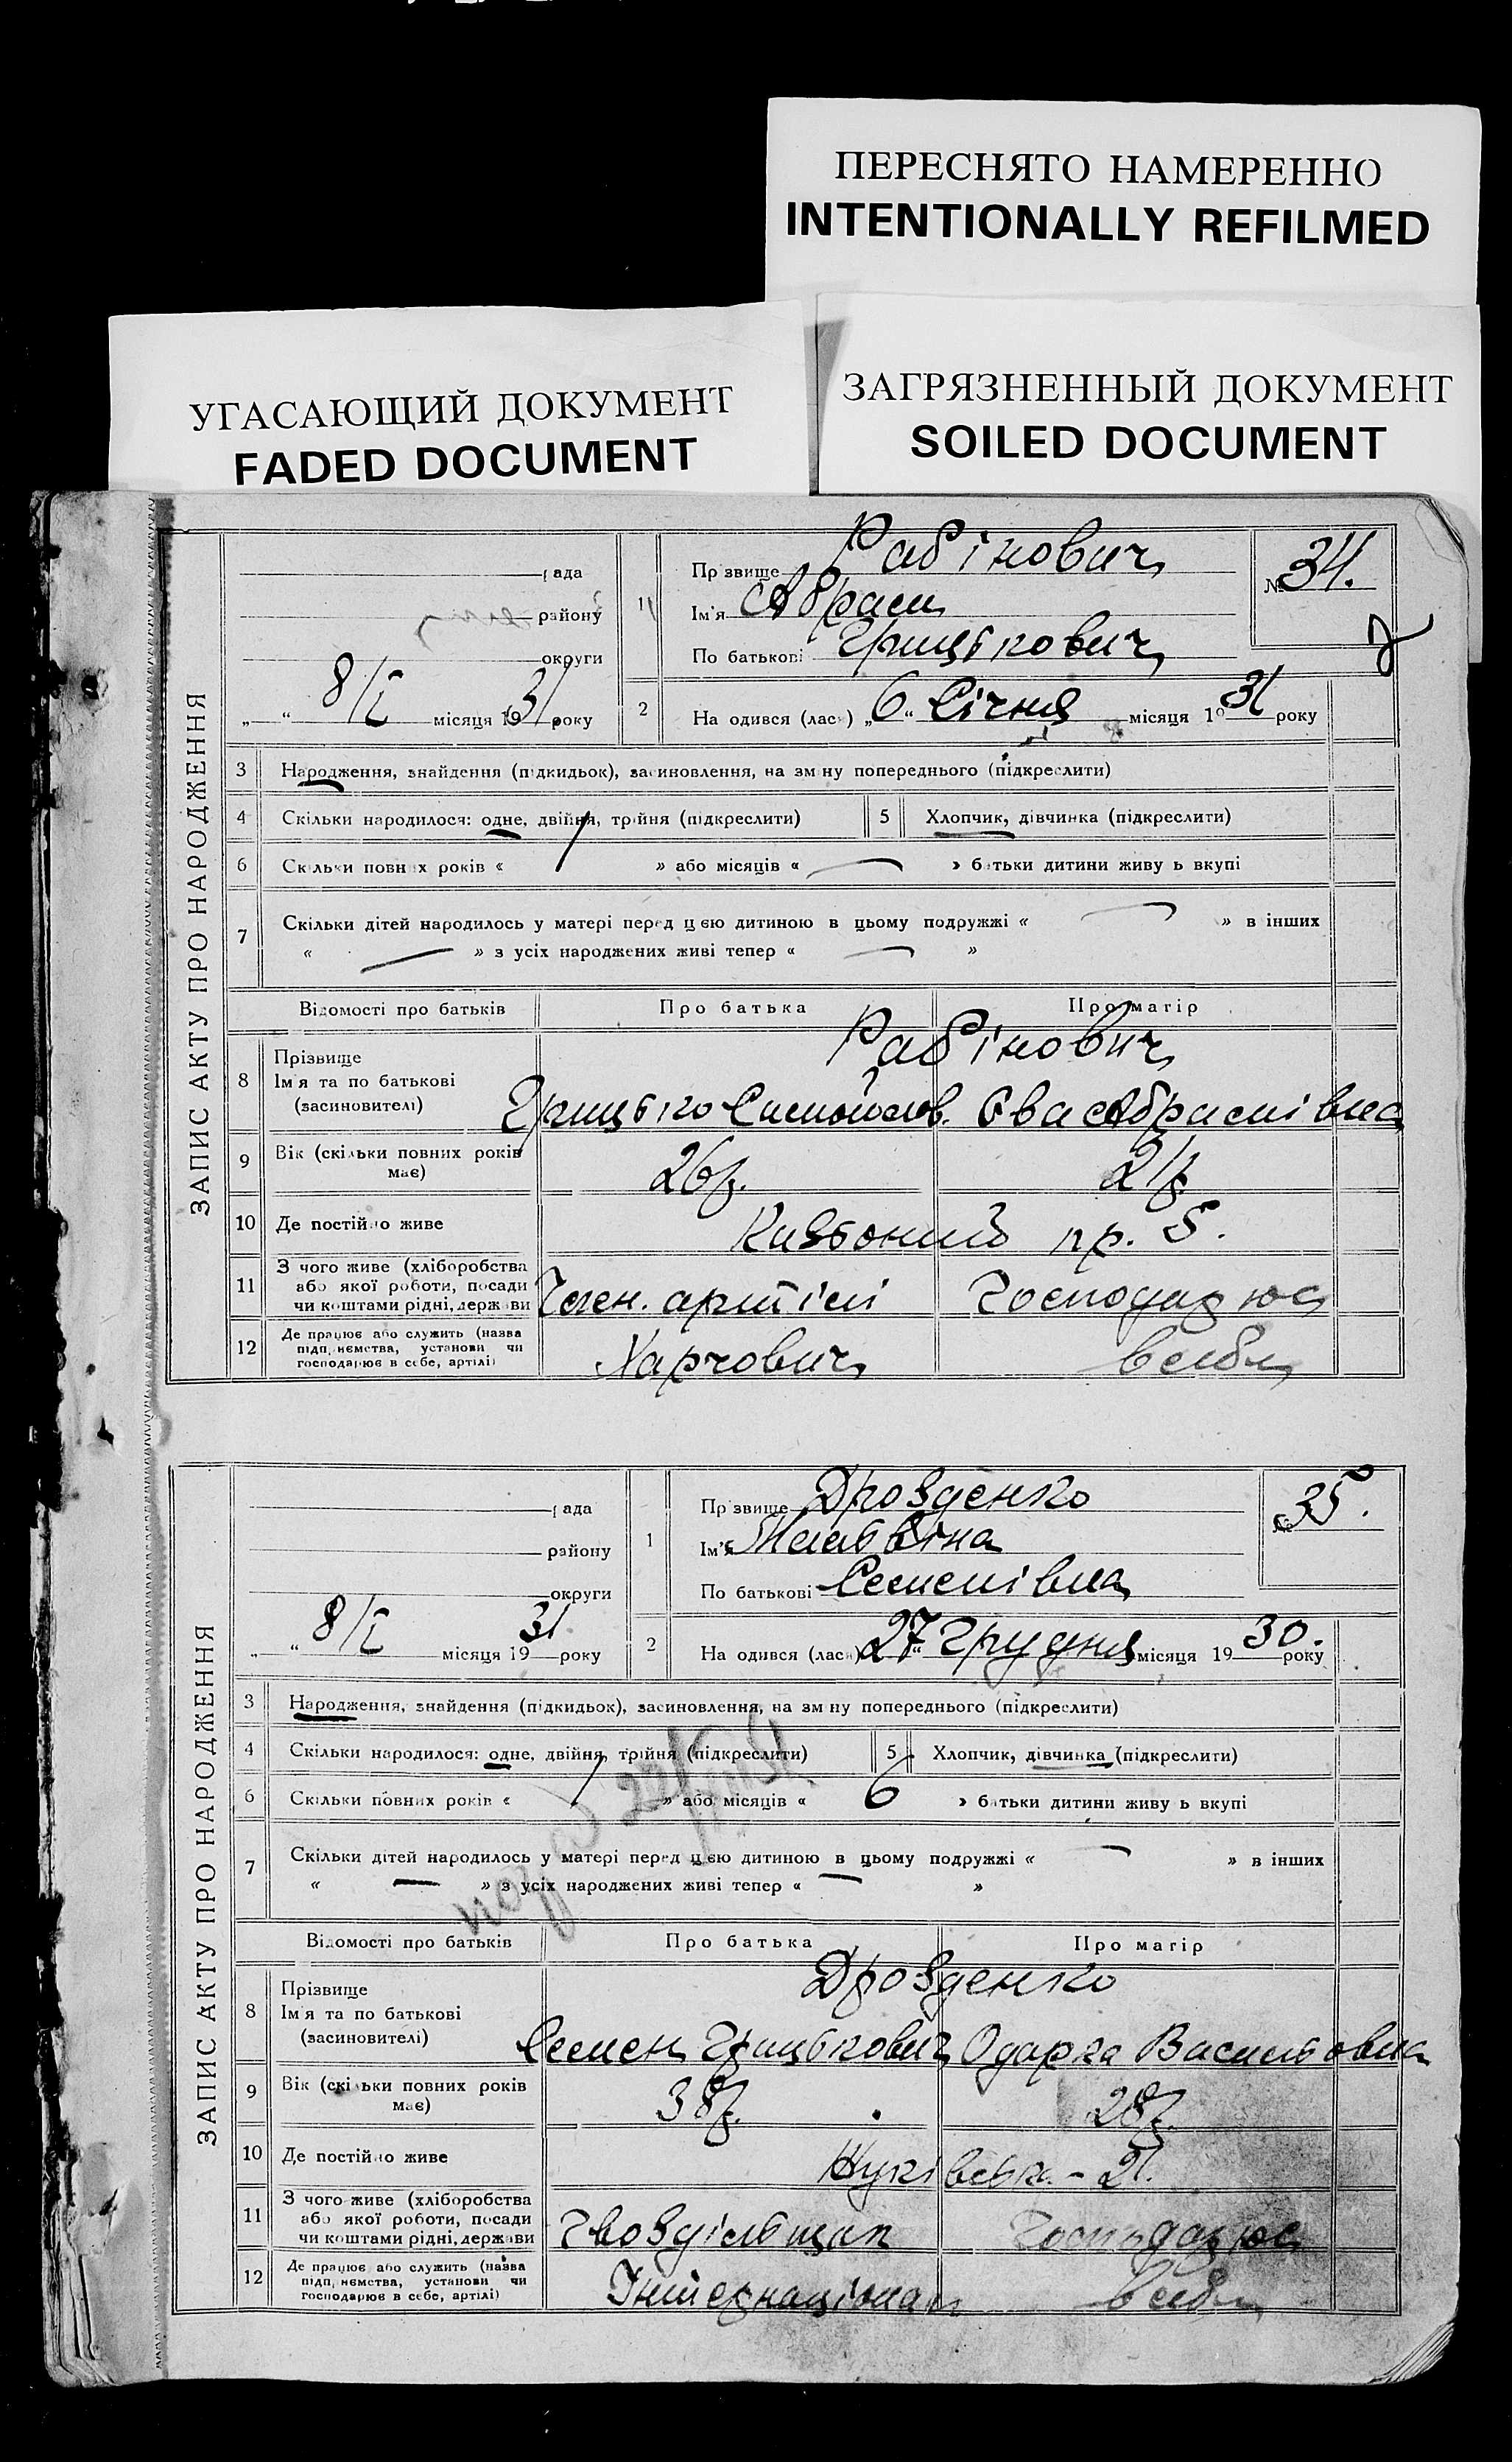 ПЕРЕСНЯТО НАМЕРЕННО
INTENTIONALLY REFILMED
УГАСАЮЩИЙ ДОКУМЕНТ
FADED DOCUMENT
ЗАГРЯЗНЕННЫЙ ДОКУМЕНТ
SOILED DOCUMENT
ЗАПИС АКТУ ПРО НАРОДЖЕННЯ
рада
району
округи
„ “ 8/I місяця 1931 року
1 Прізвище Рабінович
Ім'я Абрам
По батькові Грицькович
№ 34.
2 На одився (лась) „6“ Січня місяця 1931 року
3 Народження, знайдення (підкидьок), засиновлення, на зміну попереднього (підкреслити)
4 Скільки народилося: одне, двійня, трійня (підкреслити)
5 Хлопчик, дівчинка (підкреслити)
6 Скільки повних років « 1 » або місяців « — » батьки дитини живуть вкупі
7 Скільки дітей народилось у матері перед цією дитиною в цьому подружжі « — » в інших
« — » з усіх народжених живі тепер « — »
Відомості про батьків Про батька Про матір
8 Прізвище Рабінович
Ім'я та по батькові
(засиновителі) Грицько Самойлов. Єва Абрамівна
9 Вік (скільки повних років має) 26 р. 21 р.
10 Де постійно живе пр. 5.
11 З чого живе (хліборобства
або якої роботи, посади
чи коштами рідні, держави Член. артілі Господарює
12 Де працює або служить (назва
підприємства, установи чи
господарює в себе, артілі) Харчович
в себе
ЗАПИС АКТУ ПРО НАРОДЖЕННЯ
рада
району
округи
„ “ 8/I місяця 1931 року
1 Прізвище Дрозденко
Ім'я Мальвіна
По батькові Семенівна
№ 35.
2 На одився (лась) „27“ Грудня місяця 1930. року
3 Народження, знайдення (підкидьок), засиновлення, на зміну попереднього (підкреслити)
4 Скільки народилося: одне, двійня, трійня (підкреслити)
5 Хлопчик, дівчинка (підкреслити)
6 Скільки повних років « 1 » або місяців « 6 » батьки дитини живуть вкупі
7 Скільки дітей народилось у матері перед цією дитиною в цьому подружжі « — » в інших
« — » з усіх народжених живі тепер « — »
Відомості про батьків Про батька Про матір
8 Прізвище Дрозденко
Ім'я та по батькові
(засиновителі) Семен Грицькович Одарка Васильовна
9 Вік (скільки повних років має) 38 р. 28 р.
10 Де постійно живе 21.
11 З чого живе (хліборобства
або якої роботи, посади
чи коштами рідні, держави Гвоздільщик Господарює
12 Де працює або служить (назва
підприємства, установи чи
господарює в себе, артілі) Інтернаціонал
в себе